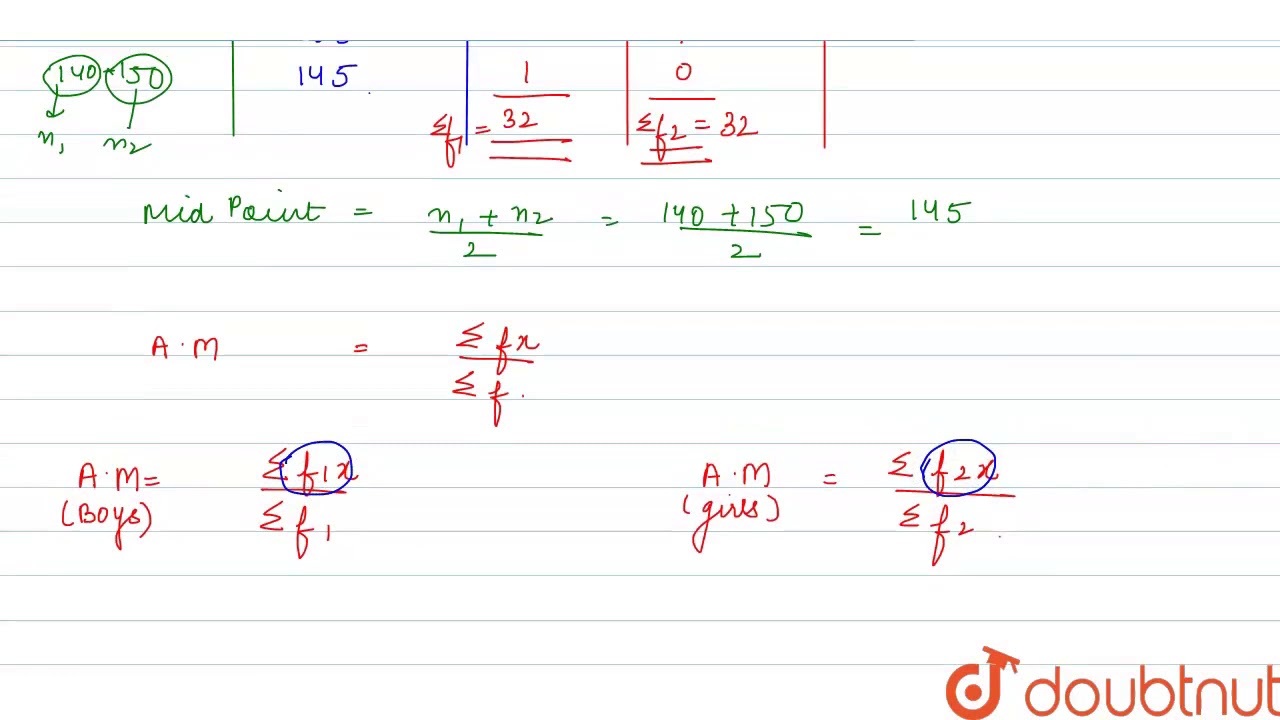 140 - 150 145 1 0
n₁ n₂ Σf₁ = 32 Σf₂ = 32
Mid Point = n₁ + n₂ / 2 = 140 + 150 / 2 = 145
A.M = Σfx / Σf.
A.M = (Boys) Σf₁x / Σf₁ A.M (girls) = Σf₂x / Σf₂
doubtnut